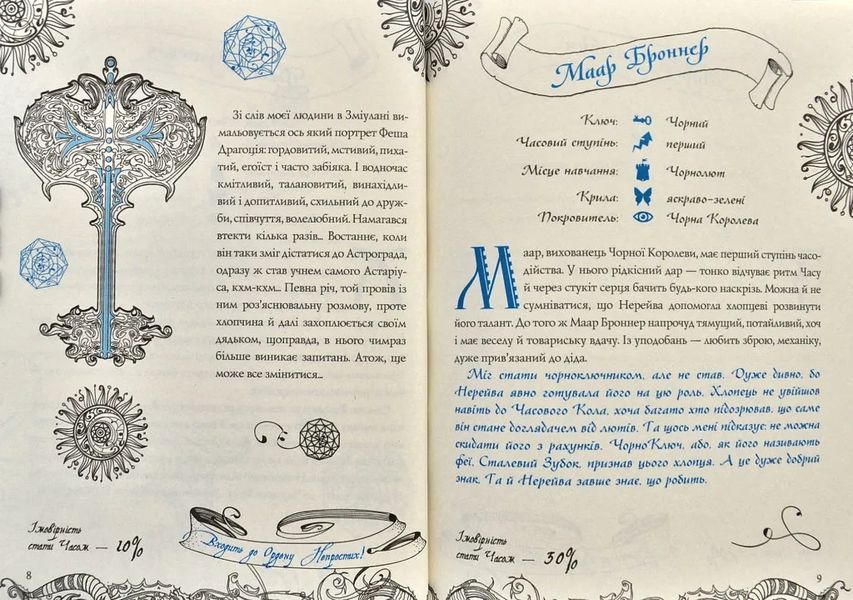 Зі слів моєї людини в Зміулані ви-
мальовується ось який портрет Феша
Драгоція: гордовитий, мстивий, пиха-
тий, егоїст і часто забіяка. І водночас
кмітливий, талановитий, винахідли-
вий і допитливий, схильний до друж-
би, співчуття, волелюбний. Намагався
втекти кілька разів... Востаннє, коли
він таки зміг дістатися до Астрограда,
одразу ж став учнем самого Астаріу-
са, кхм-кхм... Певна річ, той провів із
ним роз'яснювальну розмову, проте
хлопчина й далі захоплюється своїм
дядьком, щоправда, в нього чимраз
більше виникає запитань. Атож, ще
може все змінитися...
Імовірність
стати Часом — 20%
Входить до Ордену Непростих!
8
Маар Броннер
Ключ: Чорний
Часовий ступінь: перший
Місце навчання: Чорнолют
Крила: яскраво-зелені
Покровитель: Чорна Королева
Маар, вихованець Чорної Королеви, має перший ступінь часо-
дійства. У нього рідкісний дар — тонко відчуває ритм Часу
й через стукіт серця бачить будь-кого наскрізь. Можна й не
сумніватися, що Нерейва допомогла хлопцеві розвинути
його талант. До того ж Маар Броннер напрочуд тямущий, потайливий, хоч
і має веселу й товариську вдачу. Із уподобань — любить зброю, механіку,
дуже прив'язаний до діда.
Міг стати чорноключником, але не став. Дуже дивно, бо
Нерейва явно готувала його на цю роль. Хлопець не увійшов
навіть до Часового Кола, хоча багато хто підозрював, що саме
він стане доглядачем від лютів. Та щось мені підказує: не можна
скидати його з рахунків. ЧорноКлюч, або, як його називають
феї, Сталевий Зубок, признав цього хлопця. А це дуже добрий
знак. Та й Нерейва завше знає, що робить.
Імовірність
стати Часом — 30%
9